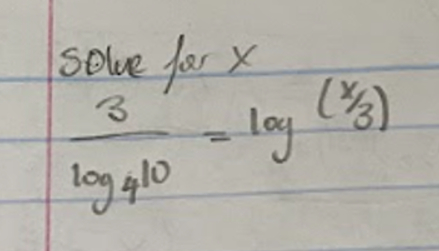 solve for x
3
log₄10
= log (x/3)